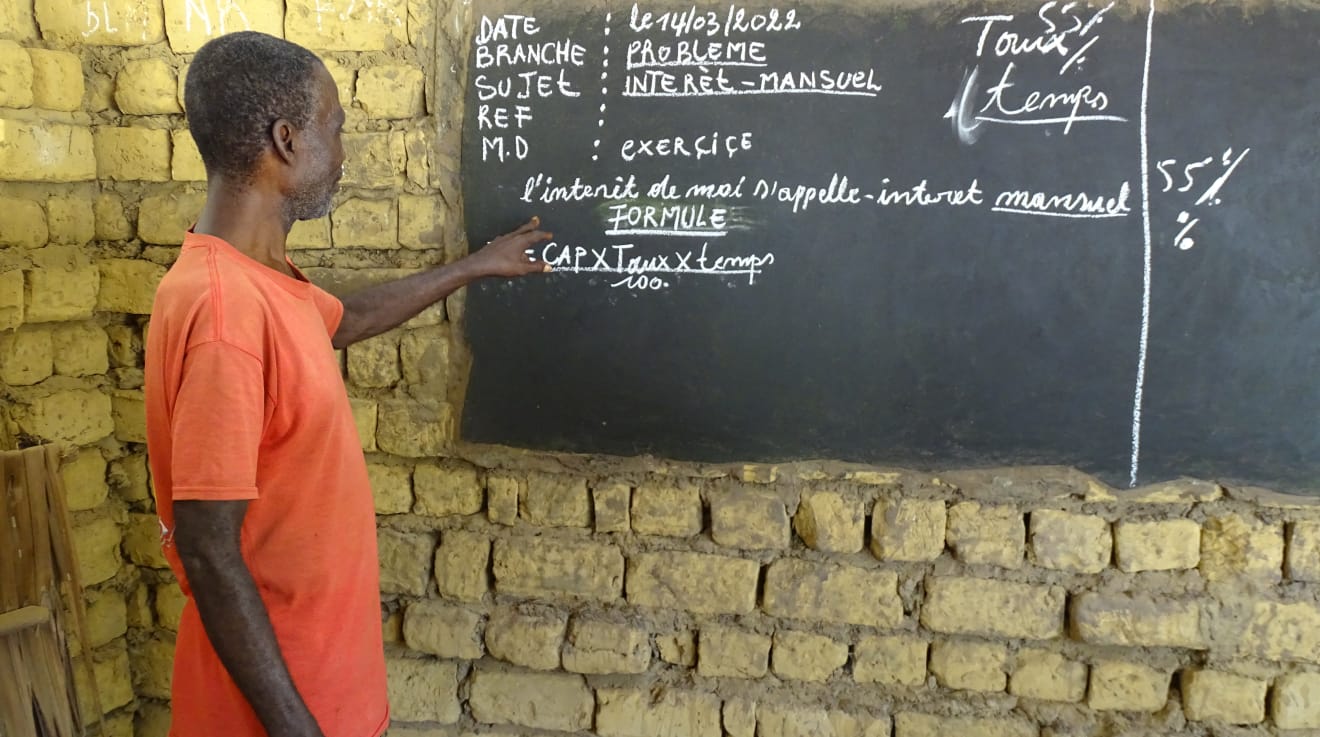 DATE : le 14/03/2022
BRANCHE : PROBLEME
SUJET : INTERÈT-MANSUEL
REF :
M.D : EXERÇIÇE
l'interêt de moi s'appelle-interet mansuel
FORMULE
= CAP X Taux X temps
100.
55%
Taux %
temps
55%
%